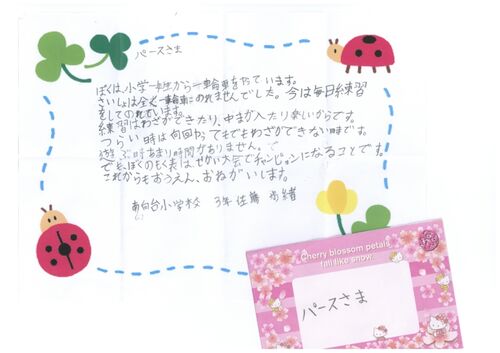 パースさま
ぼくは、小学一年生から一輪車をやっています。
さいしょは全く一輪車にのれませんでした。今は毎日練習
をしてのれています。
練習はわざができたり、中まが入たり楽しいからです。
つらい時は何回やってもでもわざができない時です。
遊ぶ時あまり時間がありません。
でも、ぼくのもく表は、せかい大会でチャンピョンになることです。
これからもおうえん、おねがいします。
南向台小学校 3年 佐藤
Cherry blossom petals
fall like snow.
パースさま